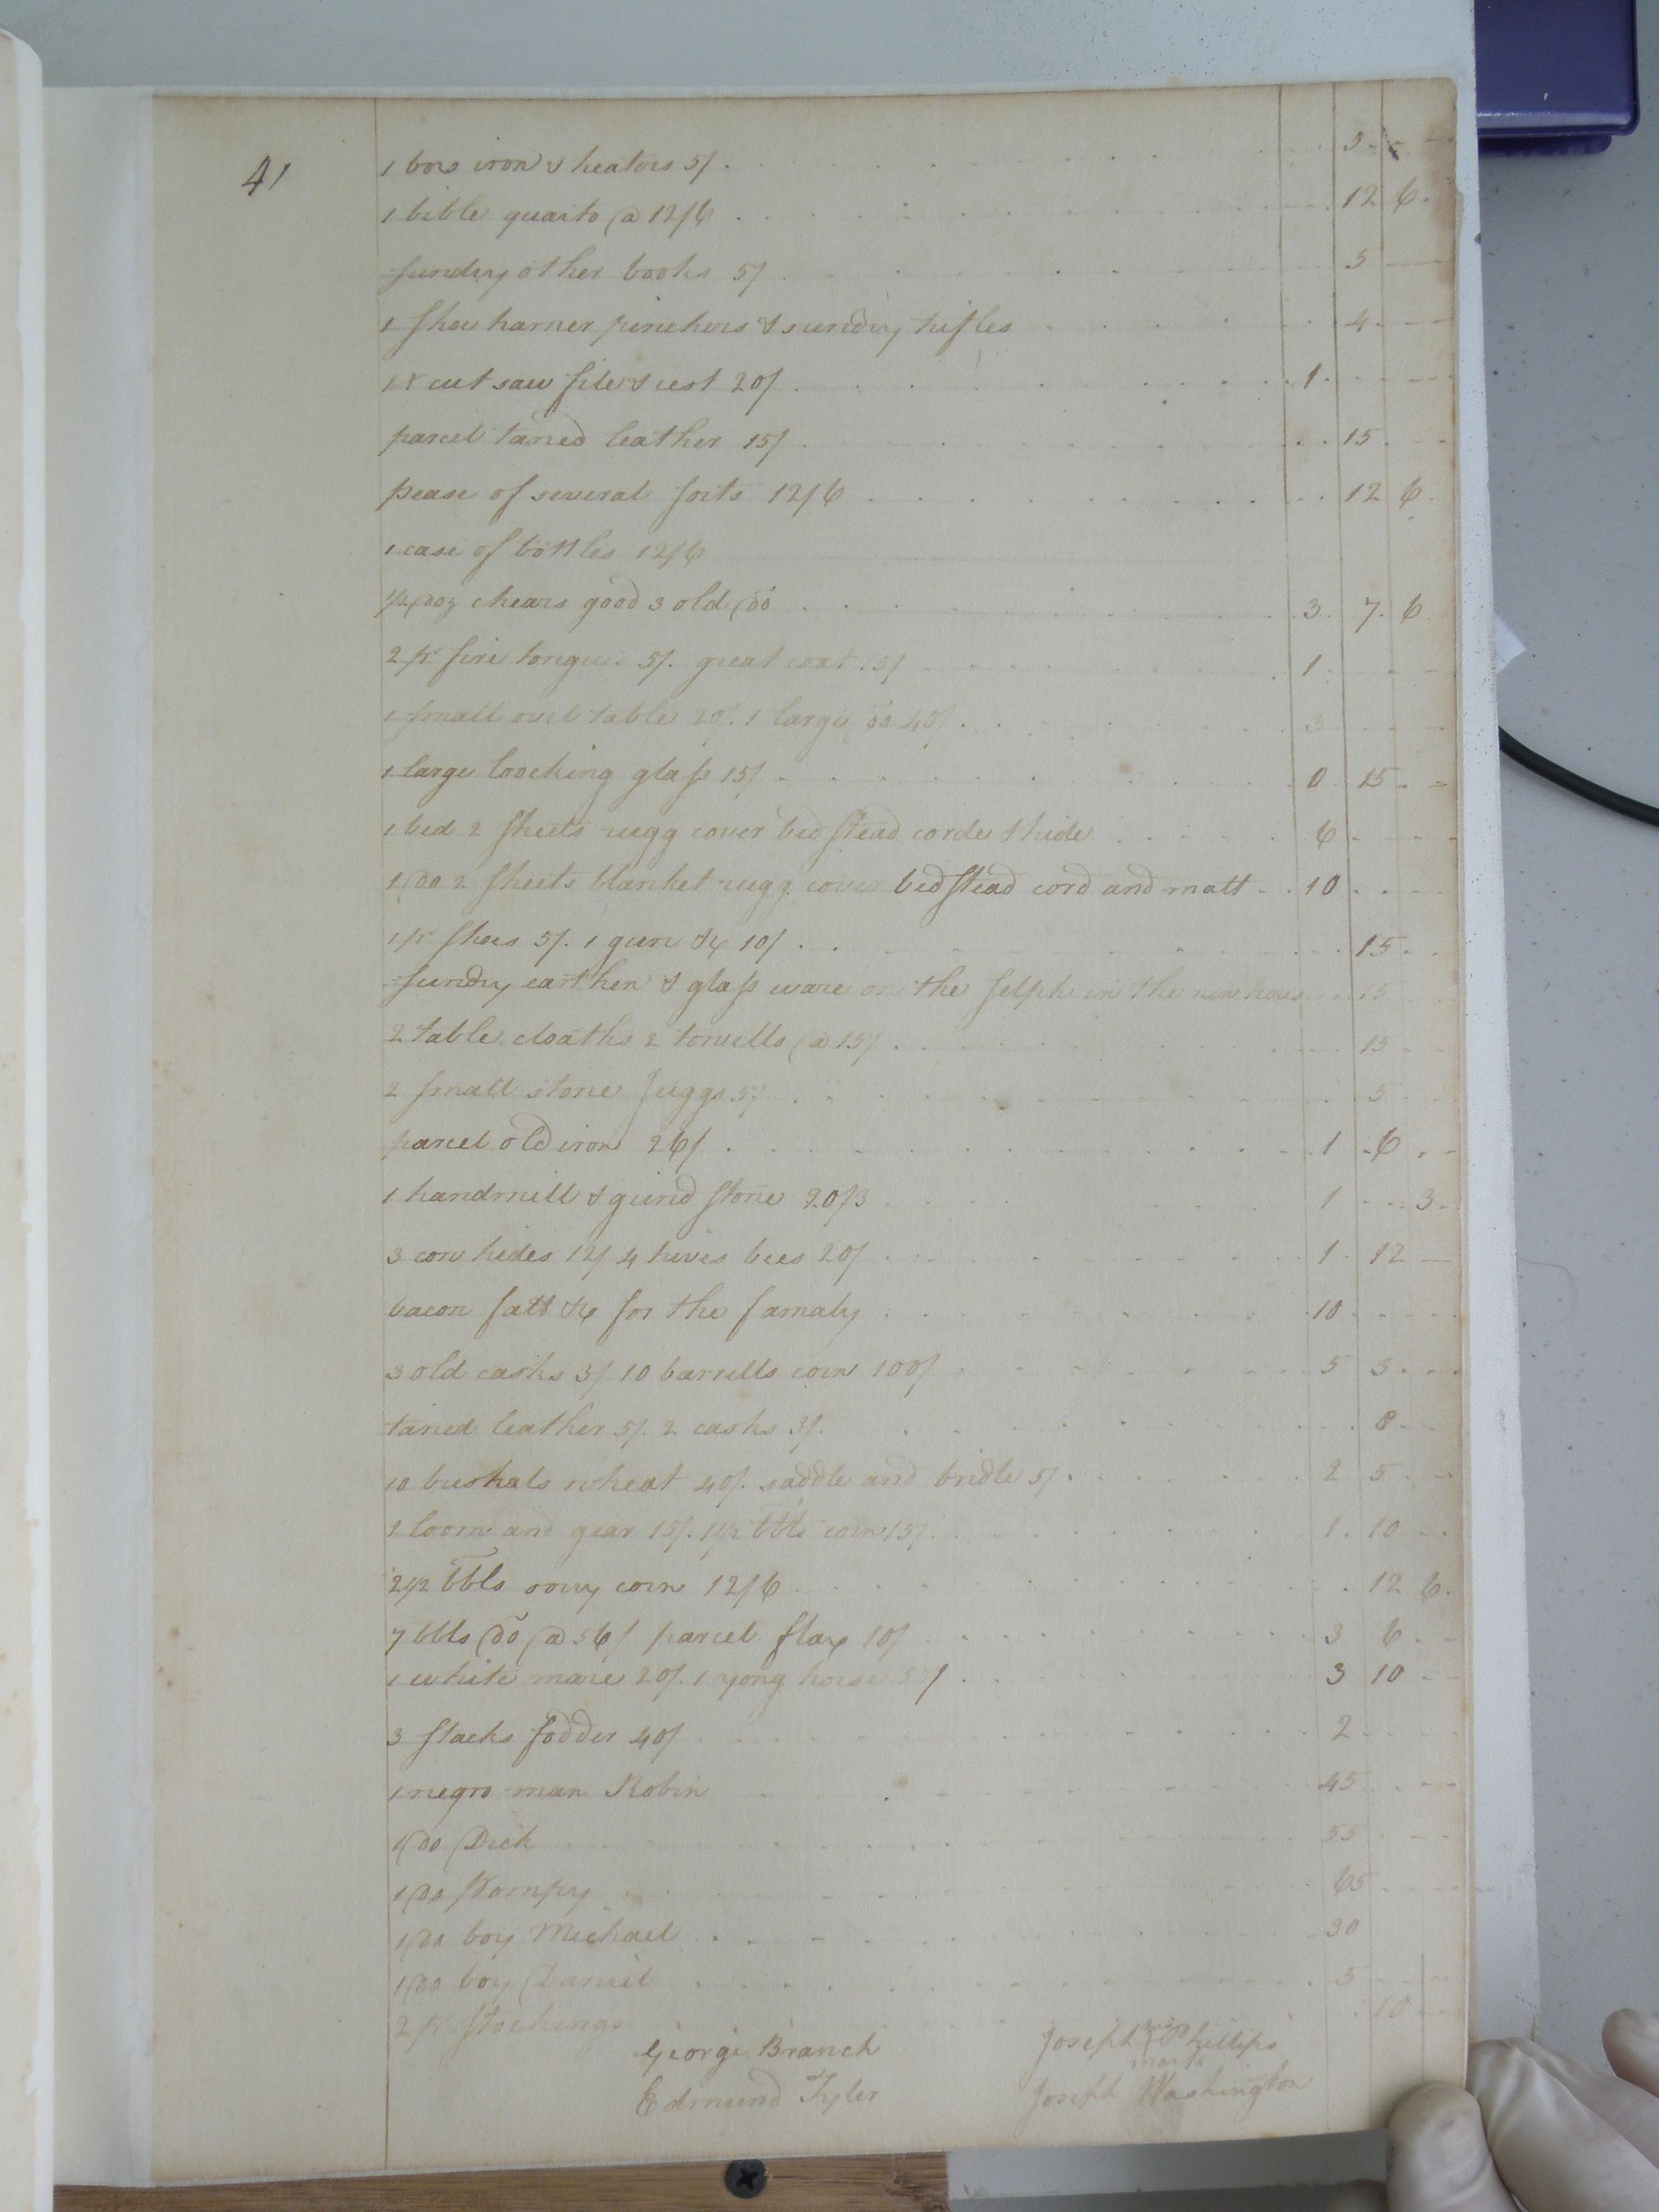 41
1 box iron & heators 5/. 5
1 bible quarto @ 12/6 12 6
sundry other books 5/ 5
1 shoe hamer pinchers & sundry trifles 4
1 X cut saw file & rest 20/ 1
parcel taned leather 15/ 15
pease of several sorts 12/6 12 6
1 case of bottles 12/6
1/2 doz chears good 3 old do 3 7 6
2 pr fire tongues 5/. great coat 15/ 1
1 small ovel table 20/. 1 large do 40/ 3
1 large loocking glass 15/ 0 15
1 bed 2 sheets rugg cover bed stead corde & hide 6
1 do 2 sheets blanket rugg cover bedstead cord and matt 10
1 pr shoes 5/. 1 gun &c 10/ 15
sundry earthen & glass ware on the selph in the new house 15
2 table cloaths 2 towells @ 15/ 15
2 small stone juggs 5/ 5
parcel old iron 26/ 1 6
1 handmill & grind stone 20/3 1 3
3 cow hides 12/ 4 hives bees 20/ 1 12
bacon fatt &c for the famaly 10
3 old casks 3/ 10 barrells corn 100/ 5 3
taned leather 5/. 2 casks 3/. 8
10 bushals wheat 40/. saddle and bridle 5/. 2 5
1 loom and gear 15/. 1 1/2 bbls corn 15/. 1 10
2 1/2 bbls corn 12/6 12 6
7 bbls do @ 56/ parcel flax 10/ 3 6
1 white mare 20/. 1 yong horse 3 10
3 stacks fodder 40/ 2
1 negro man Robin 45
1 do Dick 55
1 do Pompy 65
1 do boy Michael 30
1 do boy Daniel 5
2 pr stockings 10
George Branch Joseph Phillips
mark
Edmund Tyler Joseph Washington